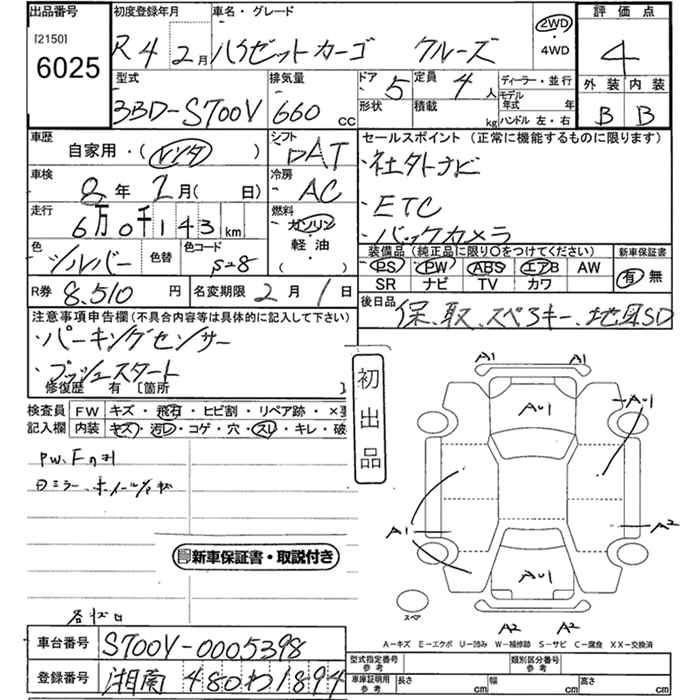 出品番号
[2150]
6025
初度登録年月
R4 2月
車名・グレード
ハイゼットカーゴ クルーズ
2WD・4WD
評価点
4
外装 内装
B B
型式
3BD-S700V
排気量
660 CC
ドア 5
形状
定員 4人
積載 kg
ディーラー・並行
モデル年式 年
ハンドル 左・右
車歴
自家用・(レンタ)
シフト
DAT
車検
8年 2月( 日)
冷房
AC
走行
6万0千143km
燃料
ガソリン
軽油
( )
色
シルバー
色替
色コード
S28
R券 8.510円
名変期限 2月1日
セールスポイント (正常に機能するものに限ります)
・社外ナビ
・ETC
・バックカメラ
装備品 (純正品に限り○をつけてください)
PS PW ABS エアB AW
SR ナビ TV カワ
新車保証書
有 無
後日品
保、取、スペアキー、地図SD
注意事項申告欄(不具合内容等は具体的に記入して下さい)
・パーキングセンサー
・プッシュスタート
修復歴 有 [箇所 ]
初出品
検査員記入欄
FW キズ・飛石・ヒビ割・リペア跡・×要
内装 キズ・汚レ・コゲ・穴・スレ・キレ・破
新車保証書・取説付き
各ズロ
A1 A1
AU1
AU1
A1
A2
AU1
A2 A2
スペア
A-キズ E-エクボ U-凹み W-補修跡 S-サビ C-腐食 XX-交換済
車台番号 S700V-0005398
登録番号 湘南 480わ1894
型式指定番号 参考
類別区分番号 参考
車庫証明用 参考
長さ cm 幅 cm 高さ cm